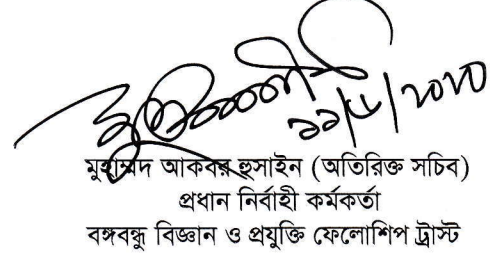 মুহাম্মদ আকবর হুসাইন (অতিরিক্ত সচিব)
প্রধান নির্বাহী কর্মকর্তা
বঙ্গবন্ধু বিজ্ঞান ও প্রযুক্তি ফেলোশিপ ট্রাস্ট